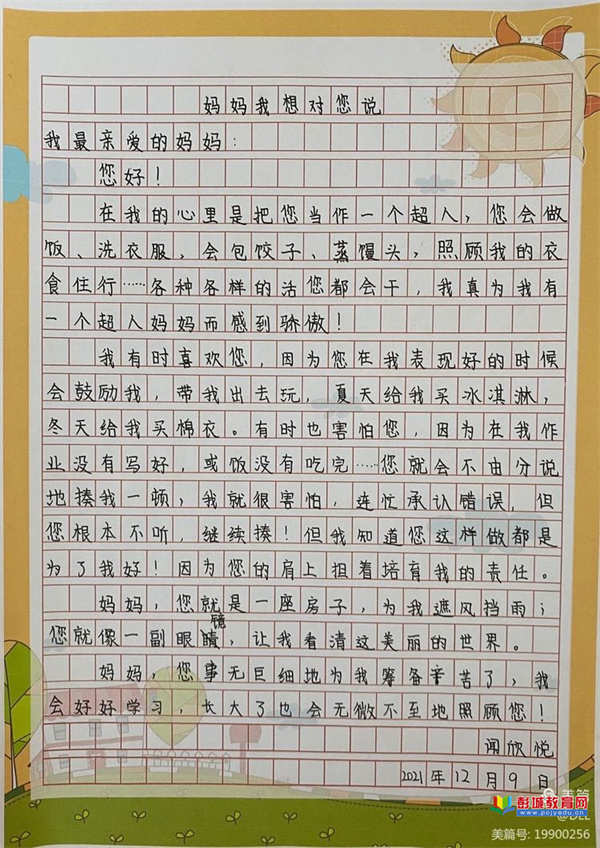 妈妈我想对您说
我最亲爱的妈妈：
您好！
在我的心里是把您当作一个超人，您会做
饭、洗衣服，会包饺子、蒸馒头，照顾我的衣
食住行……各种各样的活您都会干，我真为我有
一个超人妈妈而感到骄傲！
我有时喜欢您，因为您在我表现好的时候
会鼓励我，带我出去玩，夏天给我买冰淇淋，
冬天给我买棉衣。有时也害怕您，因为在我作
业没有写好，或饭没有吃完……您就会不由分说
地揍我一顿，我就很害怕，连忙承认错误，但
您根本不听，继续揍！但我知道您这样做都是
为了我好！因为您的肩上担着培育我的责任。
妈妈，您就是一座房子，为我遮风挡雨；
您就像一副眼镜，让我看清这美丽的世界。
妈妈，您事无巨细地为我筹备辛苦了，我
会好好学习，长大了也会无微不至地照顾您！
闻欣悦
2021年12月9日
美篇
彭城教育网
www.pcjyedu.cn
美篇号: 19900256